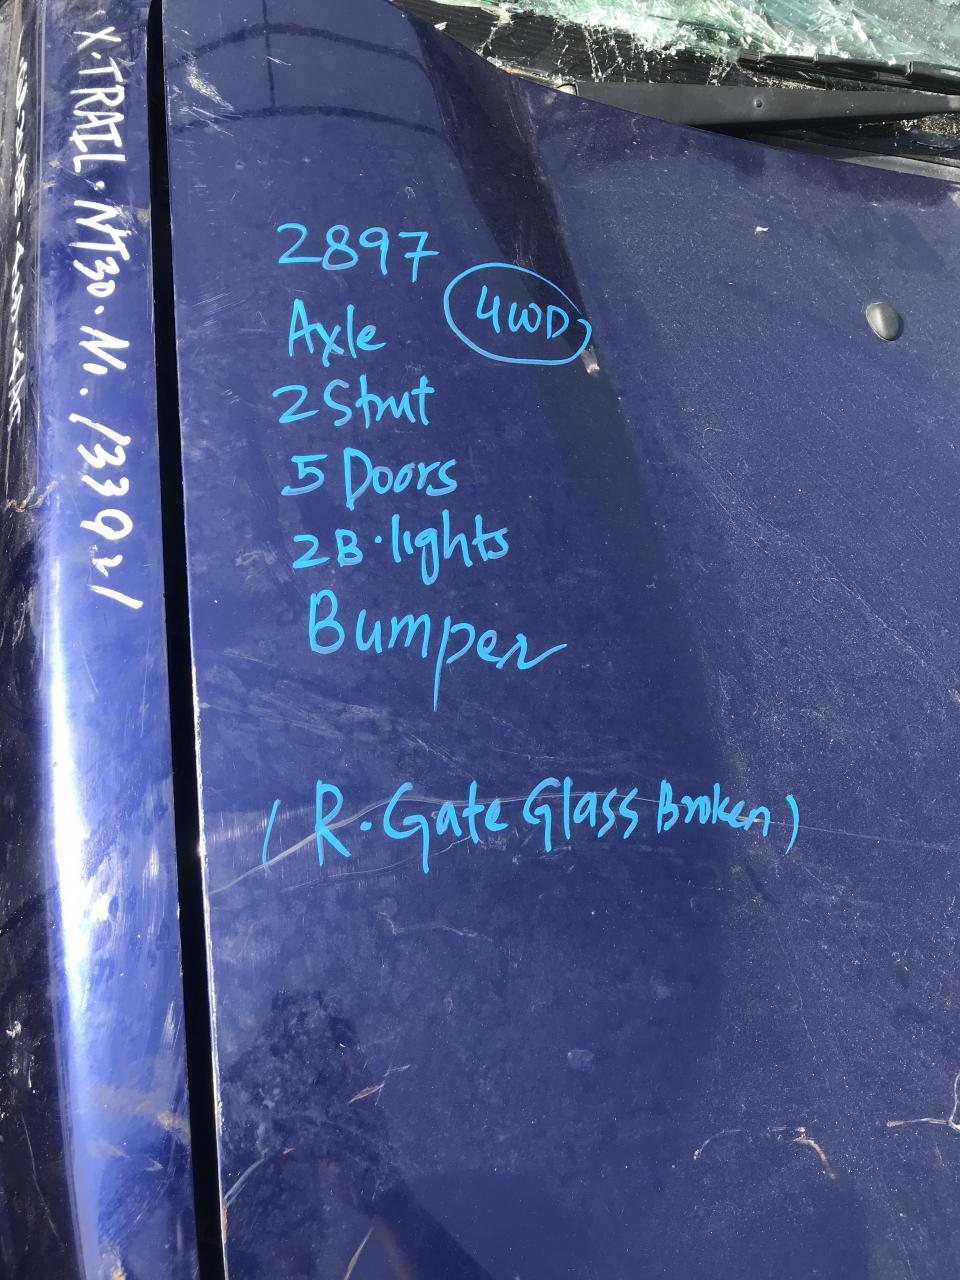 X-TRAIL. NT30. No. 133921
2897
4WD
Axle
2 Strut
5 Doors
2B.lights
Bumper
(R.Gate Glass Broken)